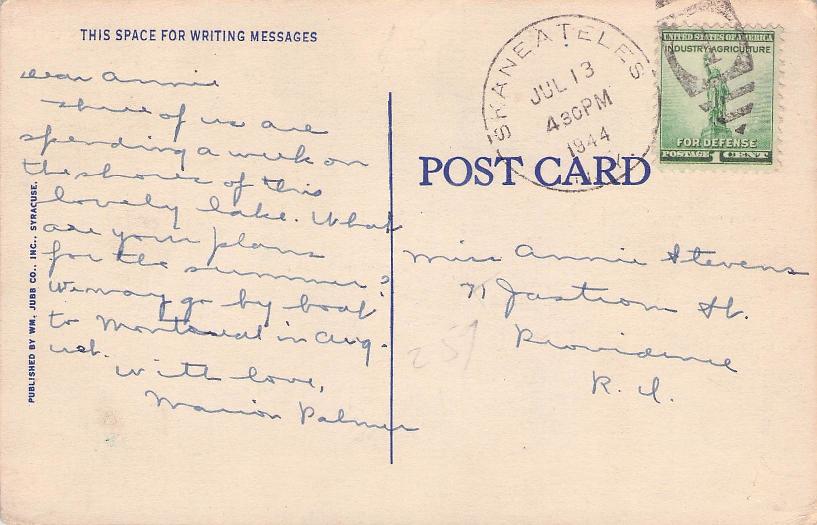 THIS SPACE FOR WRITING MESSAGES
Dear Annie
Three of us are
spending a week on
the shores of this
lovely lake. What
are your plans
for the summer?
We may go by boat
to Montreal in Aug-
ust.
With love,
Marion Palmer
PUBLISHED BY WM. JUBB CO., INC., SYRACUSE.
SKANEATELES
JUL 13
430PM
1944
N.Y.
UNITED STATES OF AMERICA
INDUSTRY AGRICULTURE
FOR DEFENSE
POSTAGE 1 CENT
POST CARD
Miss Annie Stevens
71 Jastrom St.
Providence
R. I.
257